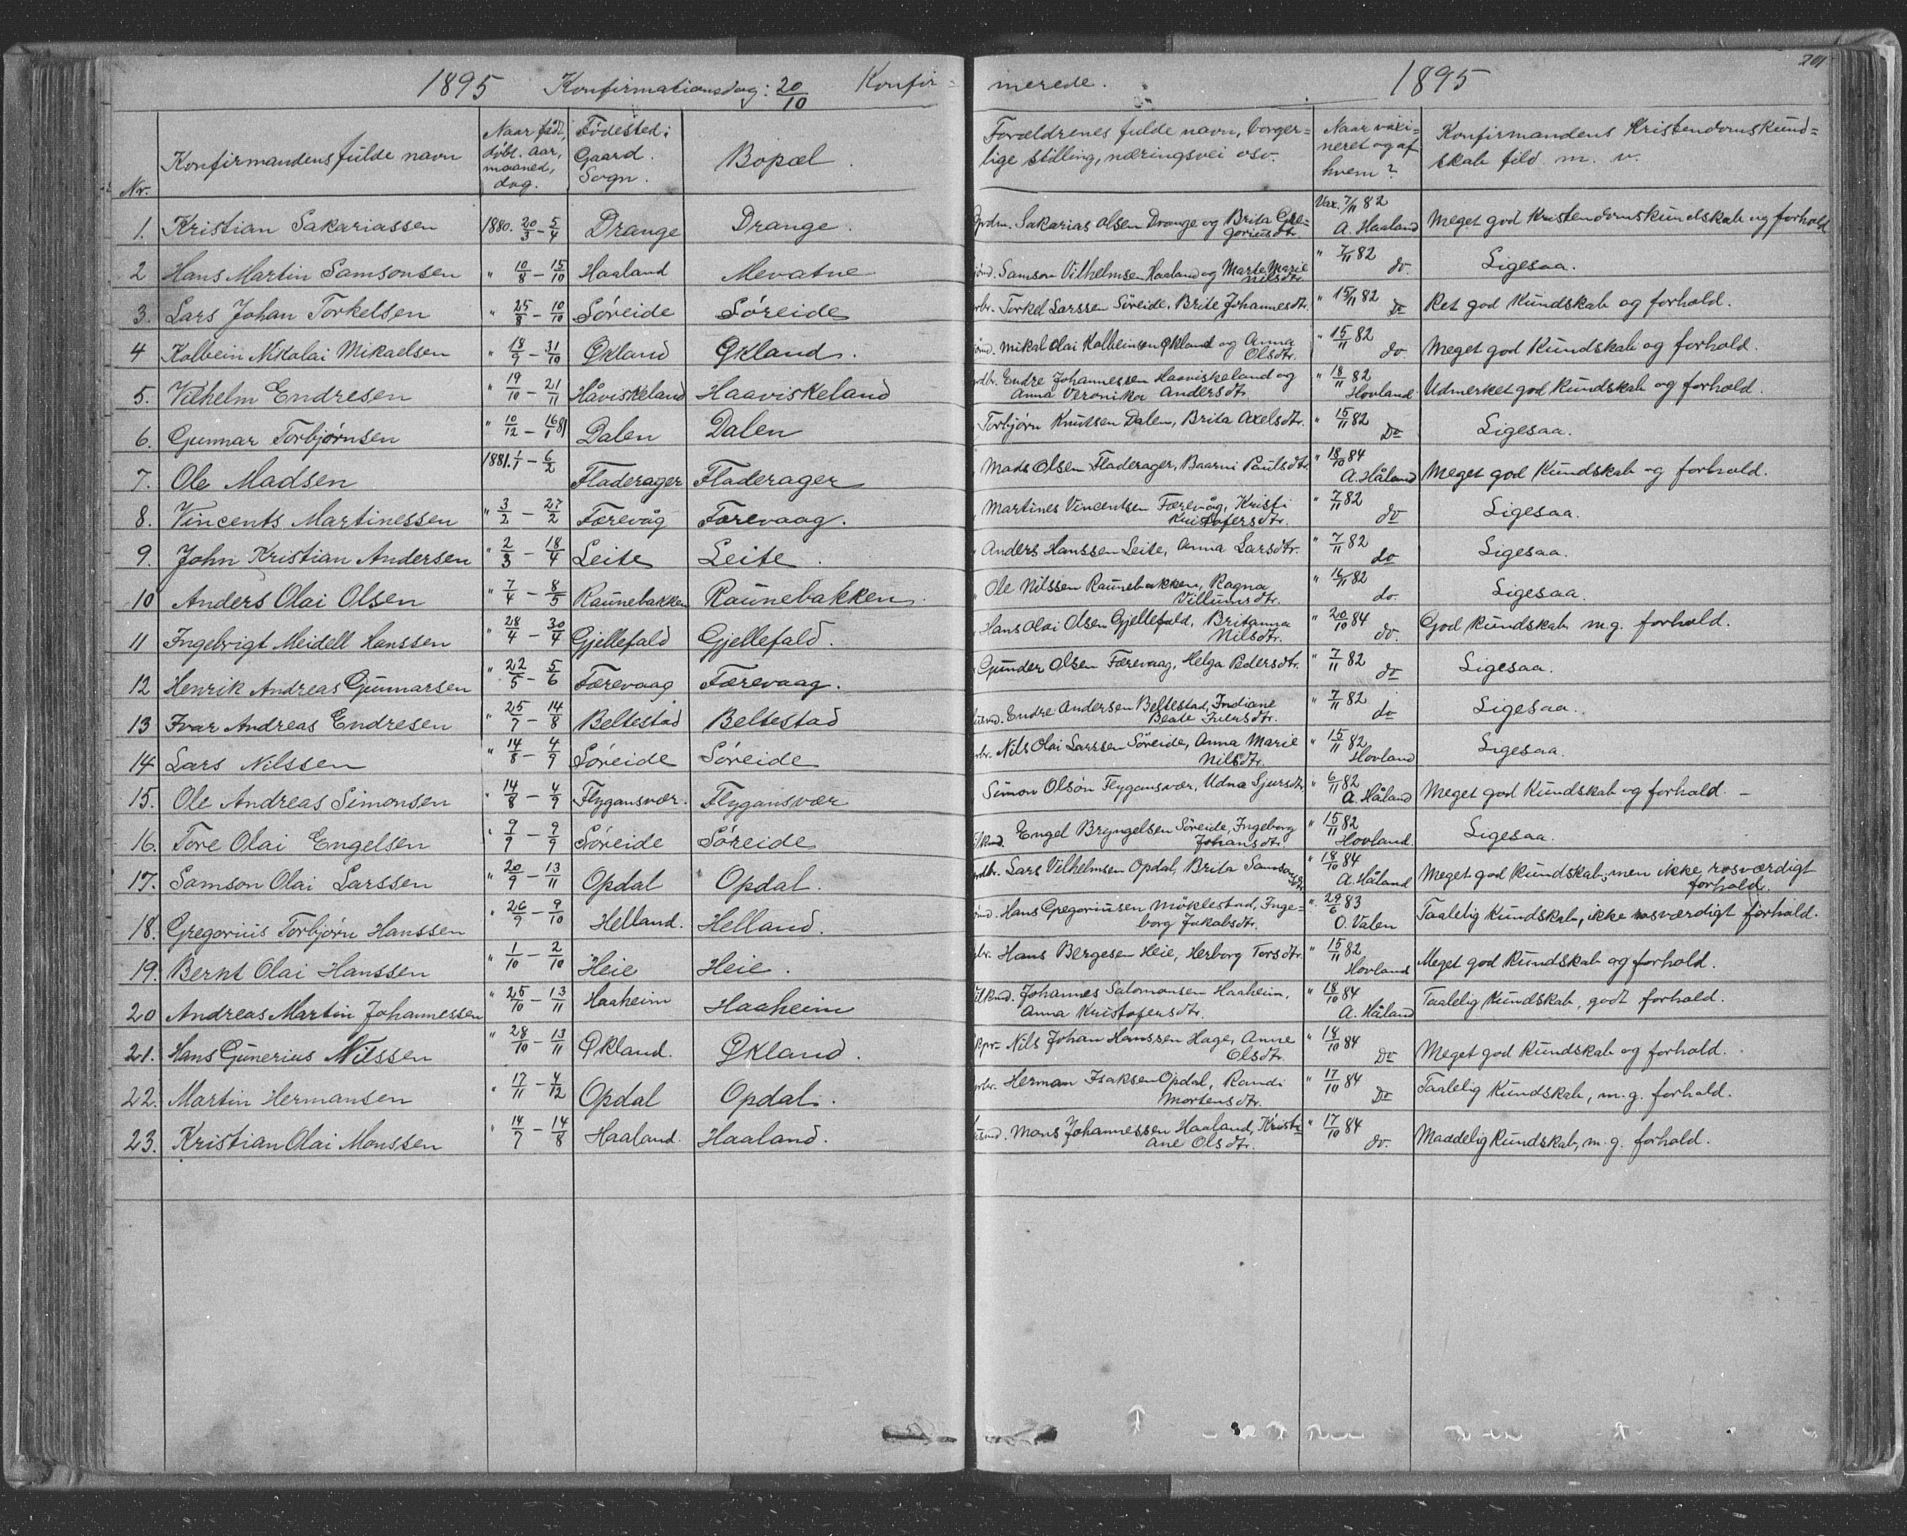 1895 Konfirmationsdag: 20/10 Konfir-
merede. 1895 201
Nr. Konfirmandens fulde navn Naar født, døbt. aar, maaned, dag. Fødested: Gaard. Sogn. Bopæl. Forældrenes fulde navn, borgerlige stilling, næringsvei osv. Naar vaxineret og af hvem? Konfirmandens Kristendomskundskab flid m. v.
1. Kristian Sakariassen 1880. 20/3 – 5/4 Drange Drange. Sakarias Olsen Drange og Brita Gregoriusdtr. Vax. 7/11 82 A. Haaland Meget god Kristendomskundskab og forhold
2 Hans Martin Samsonsen " 10/8 – 15/10 Haaland Mevatne Samson Vilhelmsen Haaland og Marta Marie Nilsdtr. " 7/11 82 do. Ligesaa.
3. Lars Johan Torkelsen " 25/8 – 10/10 Søreide Søreide Torkel Larssen Søreide. Brita Johannesdtr. " 15/11 82 Do Ret god Kundskab og forhold.
4 Kolbein Nikolai Mikaelsen " 18/9 – 31/10 Økland Økland. Mikal Olai Kolbeinsen Økland og Anna Olsdtr. " 15/11 82 do. Meget god Kundskab og forhold.
5. Vilhelm Endresen " 19/10 – 21/11 Håviskeland Haaviskeland Endre Johannessen Haaviskeland og Anna Veronika Andersdtr. " 18/11 82 Hovland Udmerket god Kundskab og forhold.
6. Gunnar Torbjørnsen " 10/12 – 16/1 81 Dalen Dalen Torbjørn Knutsen Dalen, Brita Axelsdtr. " 15/11 82 Do Ligesaa.
7. Ole Madsen 1881. 1/1 – 6/2 Fladerager Fladerager Mads Olsen Fladerager, Baarni Paulsdtr. " 18/10 84 A. Håland Meget god Kundskab og forhold.
8. Vincents Martinessen " 3/2 – 27/2 Færevåg Færevaag. Martines Vincentsen Færevåg, Kristi Kristofersdtr. " 7/11 82 do Ligesaa.
9. John Kristian Andersen " 2/3 – 18/4 Leite Leite. Anders Hanssen Leite, Anna Larsdtr. " 7/11 82 do Ligesaa.
10 Anders Olai Olsen " 7/4 – 8/5 Raunebakken Raunebakken. Ole Nilssen Raunebakken, Ragna Villumsdtr. " 16/11 82 do. Ligesaa.
11 Ingebrigt Meidell Hanssen " 28/4 – 30/4 Gjellefald Gjellefald. Hans Olai Olsen Gjellefald, Britanna Nilsdtr. " 20/10 84 do. God kundskab m.g. forhold.
12 Henrik Andreas Gunnarsen " 22/5 – 5/6 Færevaag Færevaag. Gunder Olsen Færevaag, Helga Pedersdtr. " 7/11 82 do Ligesaa.
13 Ivar Andreas Endresen " 25/7 – 14/8 Beltestad Beltestad Endre Andersen Beltestad, Indiane Beate Iversdtr. " 7/11 82 do Ligesaa.
14 Lars Nilssen " 14/8 – 4/9 Søreide Søreide Nils Olai Larssen Søreide, Anna Marie Nilsdtr. " 15/11 82 Hovland Ligesaa.
15. Ole Andreas Simonsen " 14/8 – 4/9 Flygansvær. Flygansvær Simon Olsøn Flygansvær, Udna Sjursdtr. " 6/11 82 A. Håland Meget god Kundskab og forhold. –
16. Tore Olai Engelsen " 9/9 – 9/9 Søreide Søreide Engel Bryngelsen Søreide, Ingeborg Johansdtr. " 15/11 82 Hovland. Ligesaa.
17. Samson Olai Larssen " 20/9 – 13/11 Opdal Opdal. Lars Vilhelmsen Opdal, Brita Samsonsdtr. " 18/10 84 A. Håland Meget god kundskab, men ikke rosværdigt forhold.
18. Gregorius Torbjørn Hanssen " 26/9 – 9/10 Helland. Helland. Hans Gregoriusen Møklestad, Ingeborg Jakobsdtr. " 29/6 83 O. Valen Taalelig Kundskab, ikke rosværdigt forhold.
19. Bernt Olai Hanssen " 1/10 – 2/10 Heie Heie. Hans Bergesen Heie, Herborg Torsdtr. " 15/11 82 Hovland Meget god Kundskab og forhold.
20 Andreas Martin Johannessen " 25/10 – 13/11 Haaheim Haaheim Johannes Salomonsen Haaheim, Anna Kristofersdtr. " 18/10 84 A. Håland Taalelig Kundskab, godt forhold.
21. Hans Gunerius Nilssen " 28/10 – 13/11 Økland. Økland. Nils Johan Hanssen Hage, Anne Olsdtr. " 18/10 84 Do Meget god kundskab og forhold.
22. Martin Hermansen " 17/11 – 4/12 Opdal Opdal. Herman Isaksen Opdal, Randi Mortensdtr. " 17/10 84 Do Taalelig Kundskab, m.g. forhold.
23. Kristian Olai Monssen " 14/7 – 14/8 Haaland. Haaland. Mons Johannessen Haaland, Kristiane Olsdtr. " 17/10 84 do. Maadelig Kundskab, m.g. forhold.